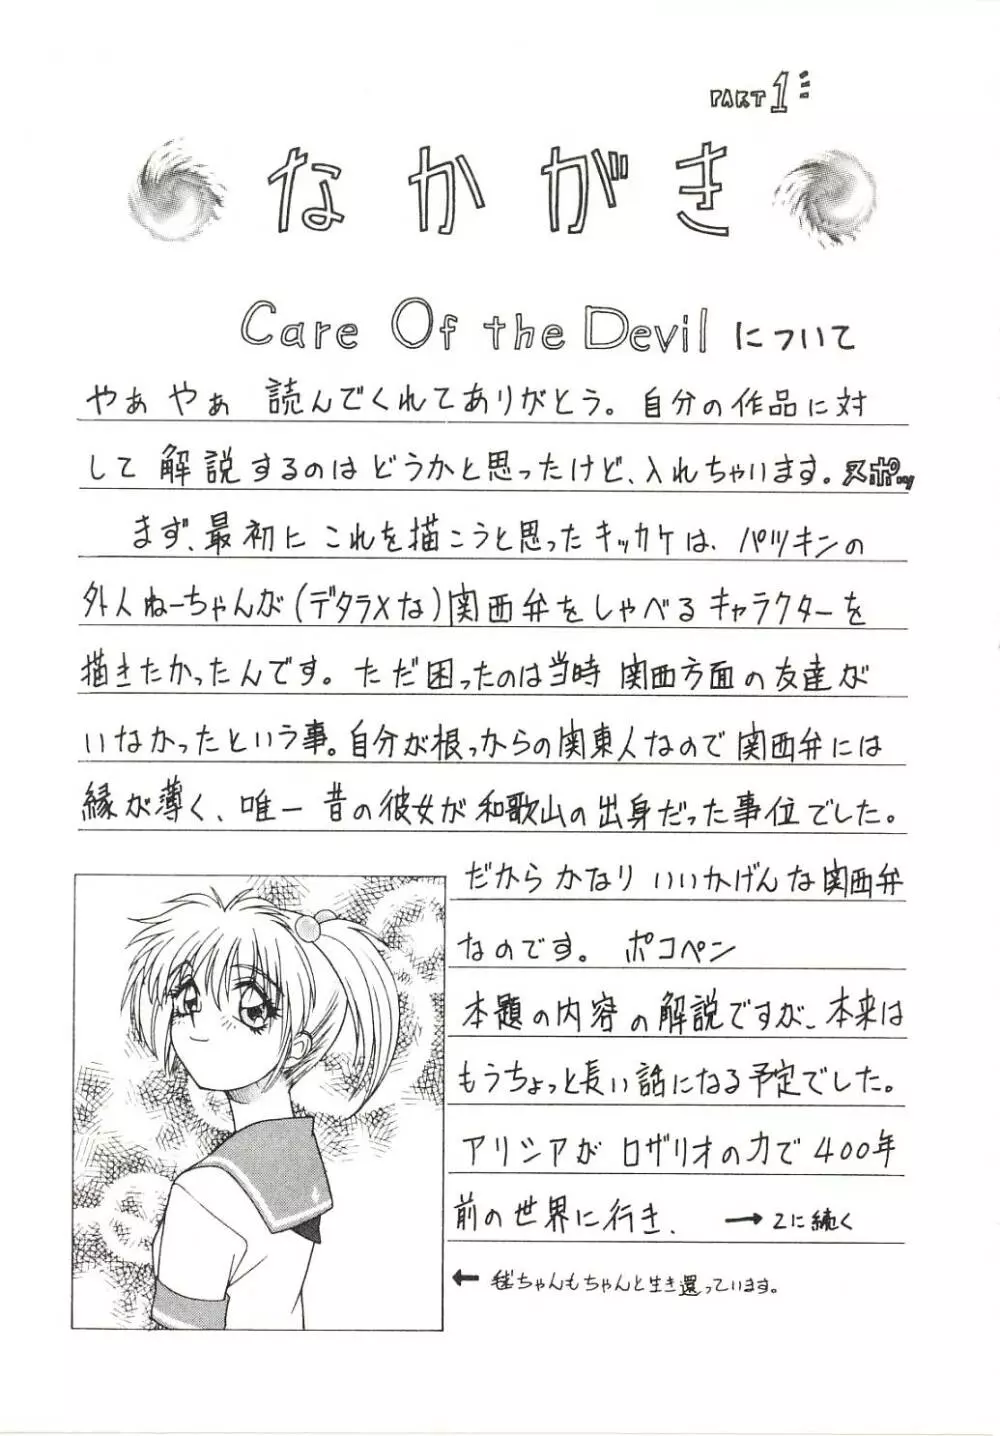 PART 1
なかがき
Care Of the Devil について
やぁ やぁ 読んでくれてありがとう。自分の作品に対
して 解説するのはどうかと思ったけど、入れちゃいます。ヌポッ
まず、最初に これを描こうと思ったキッカケは、パツキンの
外人ねーちゃんが(デタラメな)関西弁をしゃべるキャラクターを
描きたかったんです。ただ困ったのは当時 関西方面の友達が
いなかったという事。自分が根っからの関東人なので関西弁には
縁が薄く、唯一 昔の彼女が和歌山の出身だった事位でした。
だから かなり いいかげんな関西弁
なのです。 ポコペン
本題の内容の解説ですが、本来は
もうちょっと長い話になる予定でした。
アリシアが ロザリオの力で400年
前の世界に行き、 → 2に続く
← ちゃんもちゃんと生き還っています。